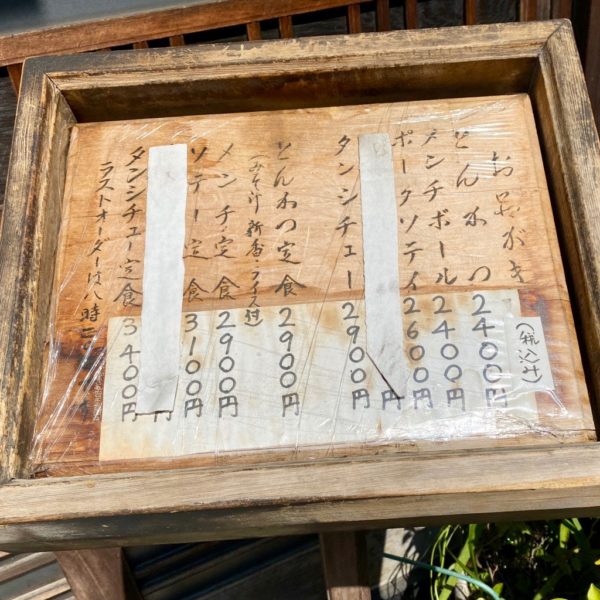 お品がき
(税込み)
とんかつ 2400円
メンチボール 2400円
ポークソテイ 2600円
円
タンシチュー 2900円
とんかつ定食 2900円
(みそ汁 新香 ライス付)
メンチ定食 2900円
ソテー定食 3100円
円
タンシチュー定食 3400円
ラストオーダーは八時